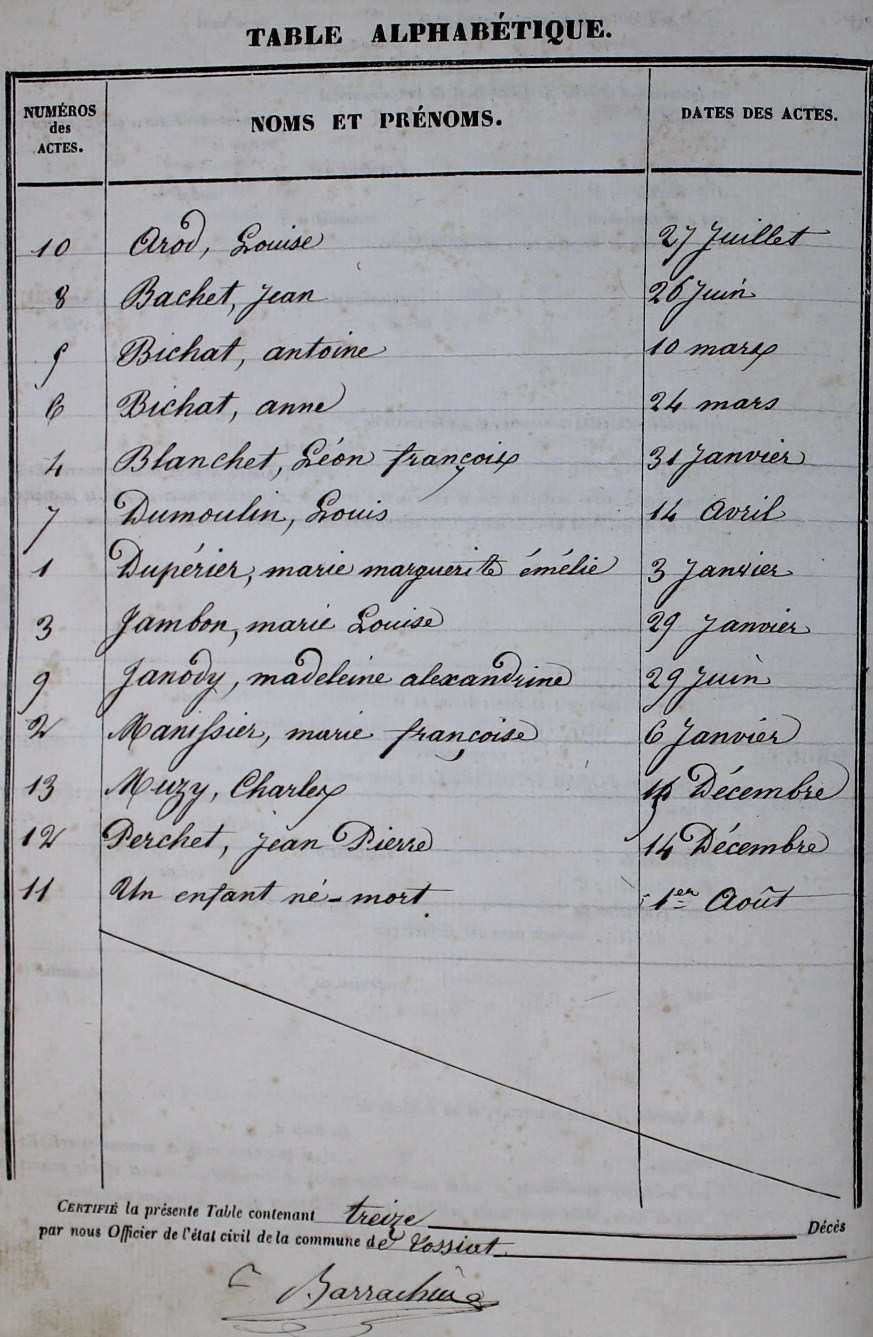 TABLE ALPHABÉTIQUE.
NUMÉROS des ACTES. NOMS ET PRÉNOMS. DATES DES ACTES.
10 Arod, Louise 27 Juillet
8 Bachet, Jean 26 Juin
5 Bichat, antoine 10 mars
6 Bichat, anne 24 mars
4 Blanchet, Léon françois 31 Janvier
7 Dumoulin, Louis 14 Avril
1 Dupérier, marie marguerite émélie 3 Janvier
3 Jambon, marie Louise 29 Janvier
9 Janody, madeleine alexandrine 29 Juin
2 Manissier, marie françoise 6 Janvier
13 Muzy, Charles Décembre
12 Perchet, jean Pierre 14 Décembre
11 Un enfant né-mort 1er Août
CERTIFIÉ la présente Table contenant treize Décès
par nous Officier de l'état civil de la commune de Tossiat